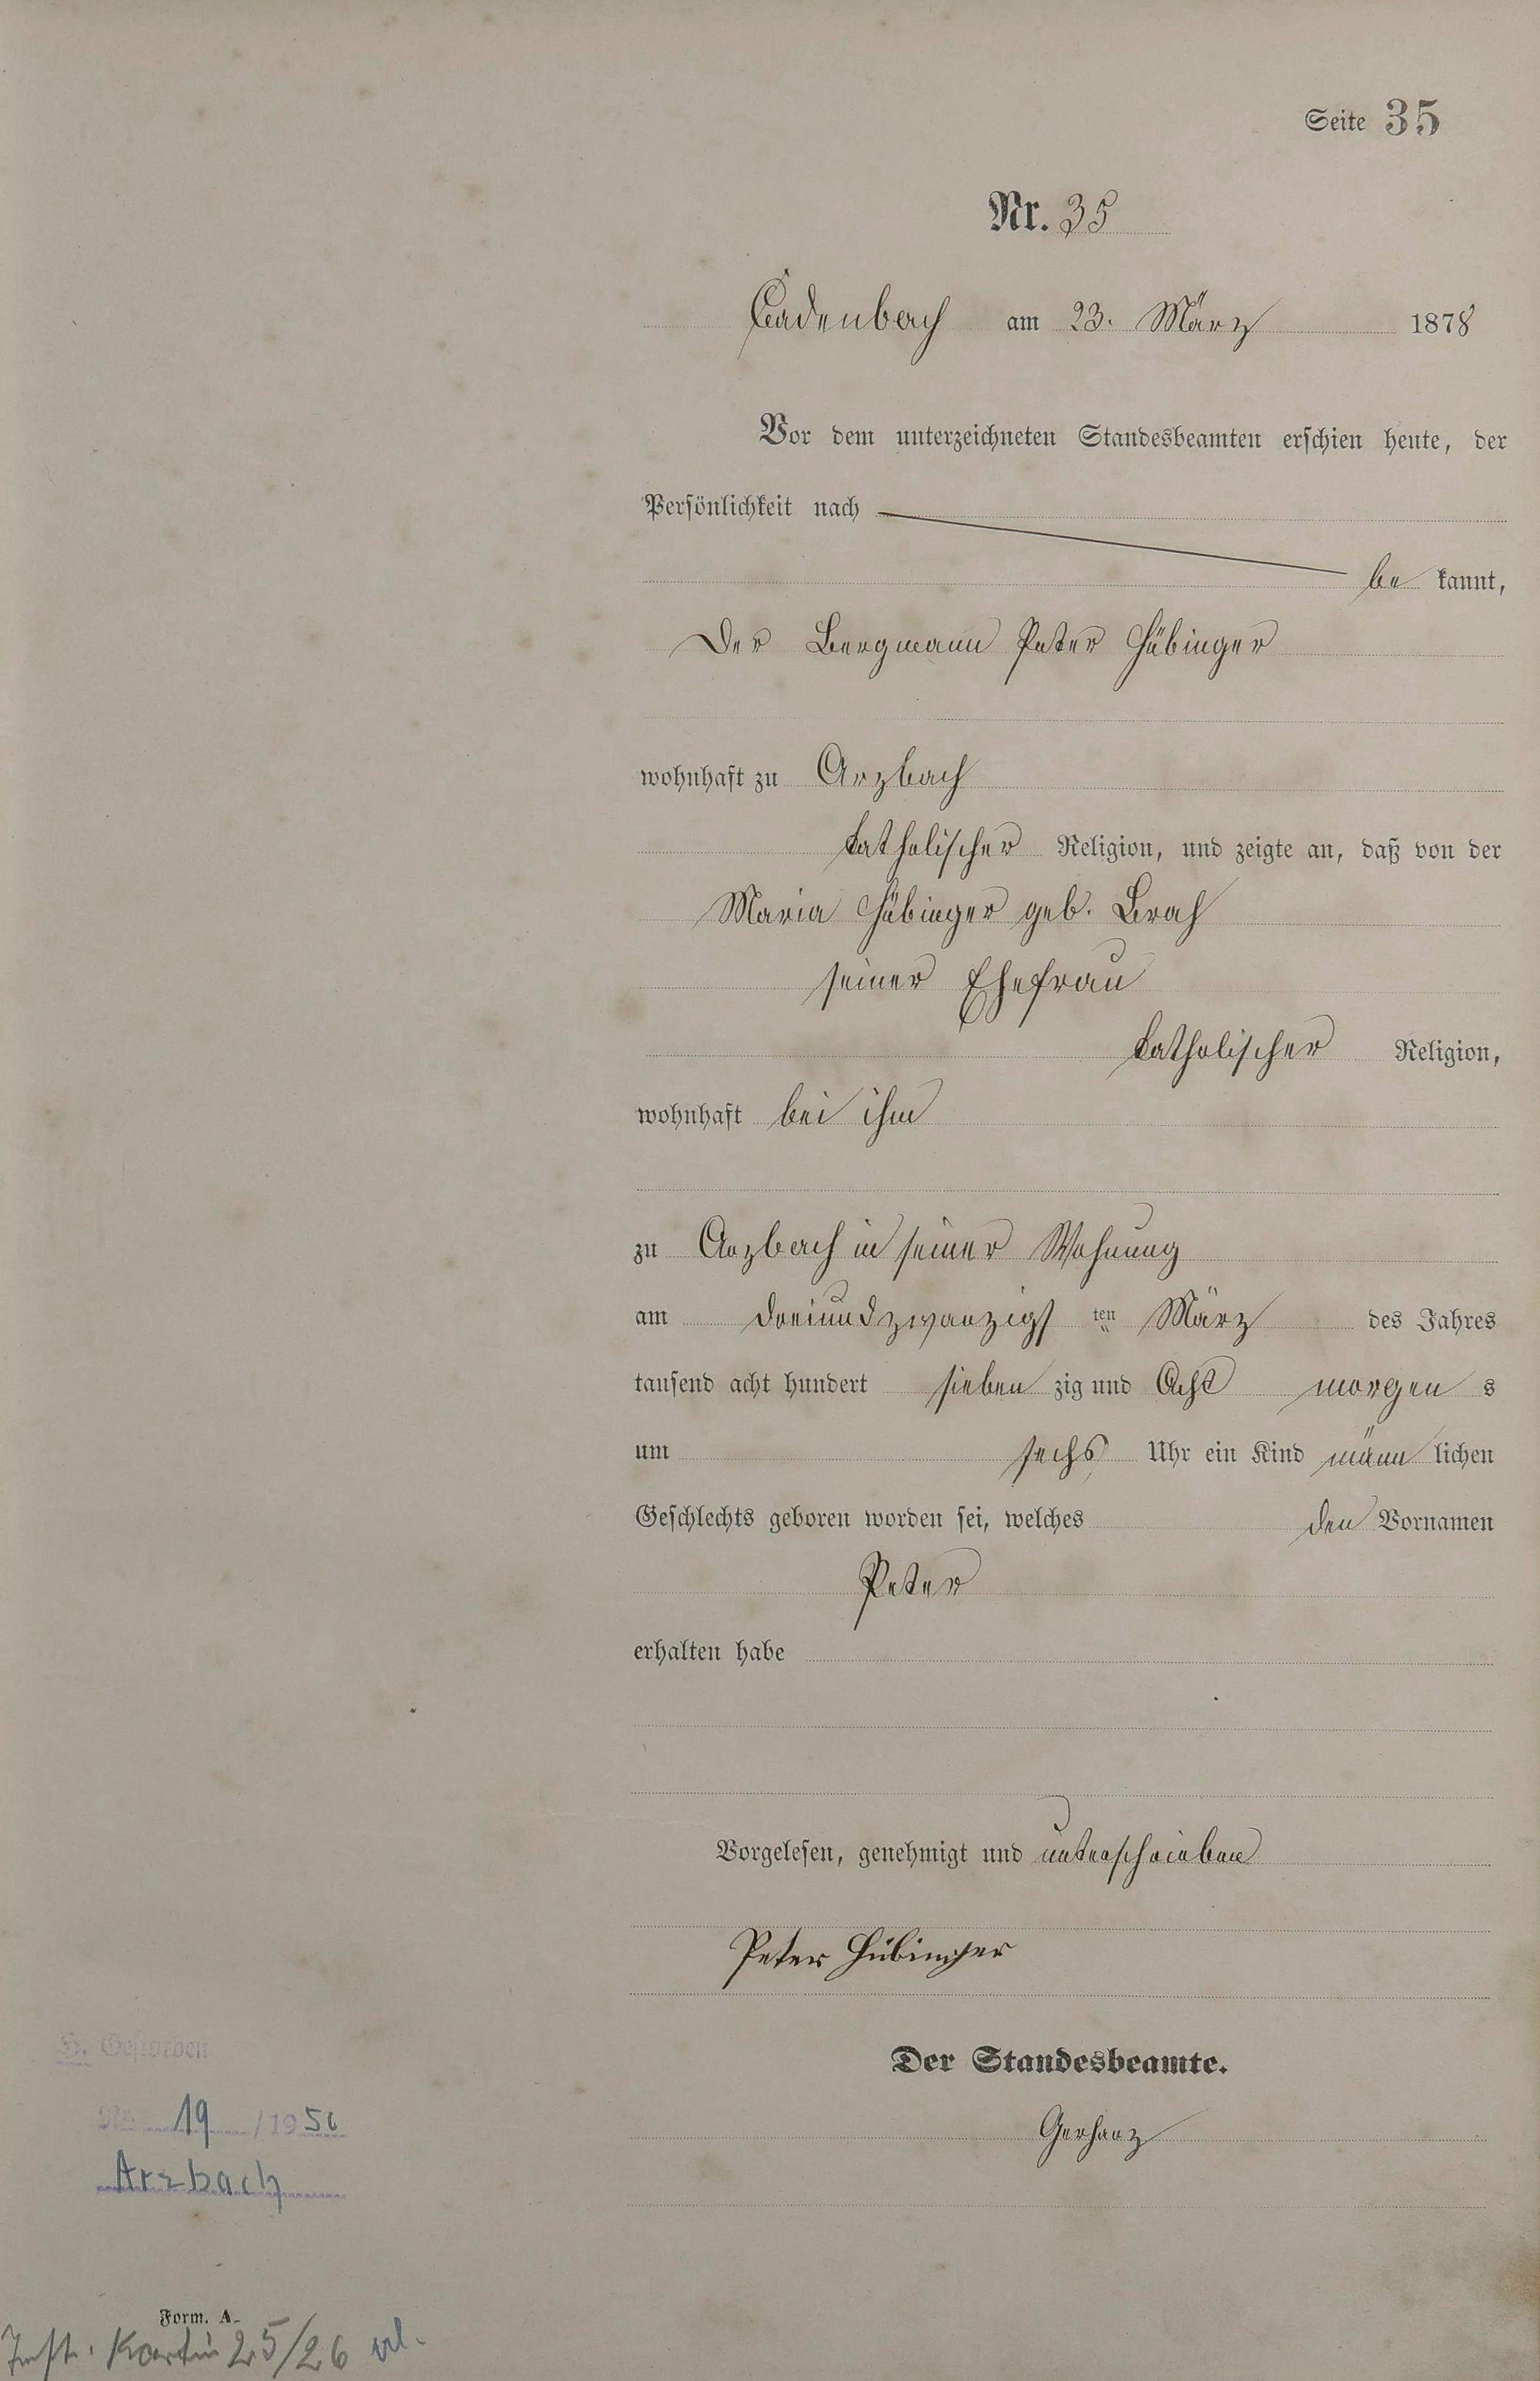 Seite 35
Nr. 35
Cadenbach am 23. März 1878
Vor dem unterzeichneten Standesbeamten erschien heute, der
Persönlichkeit nach
be kannt,
Der Bergmann Peter Hübinger
wohnhaft zu Arzbach
katholischer Religion, und zeigte an, daß von der
Maria Hübinger geb. Brah
seiner Ehefrau
katholischer Religion,
wohnhaft bei ihm
zu Arzbach in seiner Wohnung
am dreiundzwanzigs ten März des Jahres
tausend acht hundert sieben zig und Acht morgen s
um sechs Uhr ein Kind männ lichen
Geschlechts geboren worden sei, welches den Vornamen
Peter
erhalten habe
Vorgelesen, genehmigt und unterschrieben
Peter Hübinger
Der Standesbeamte.
Gerharz
H. Gestorben
Nr. 19 /1950
Arzbach
Form. A.
25/26